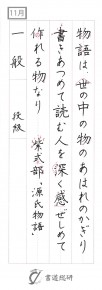 11月
物語は、世の中の物のあはれのかぎり
書きあつめて読む人を深く感ぜしめて
作れる物なり
紫式部「源氏物語」
一般
段級
書道総研